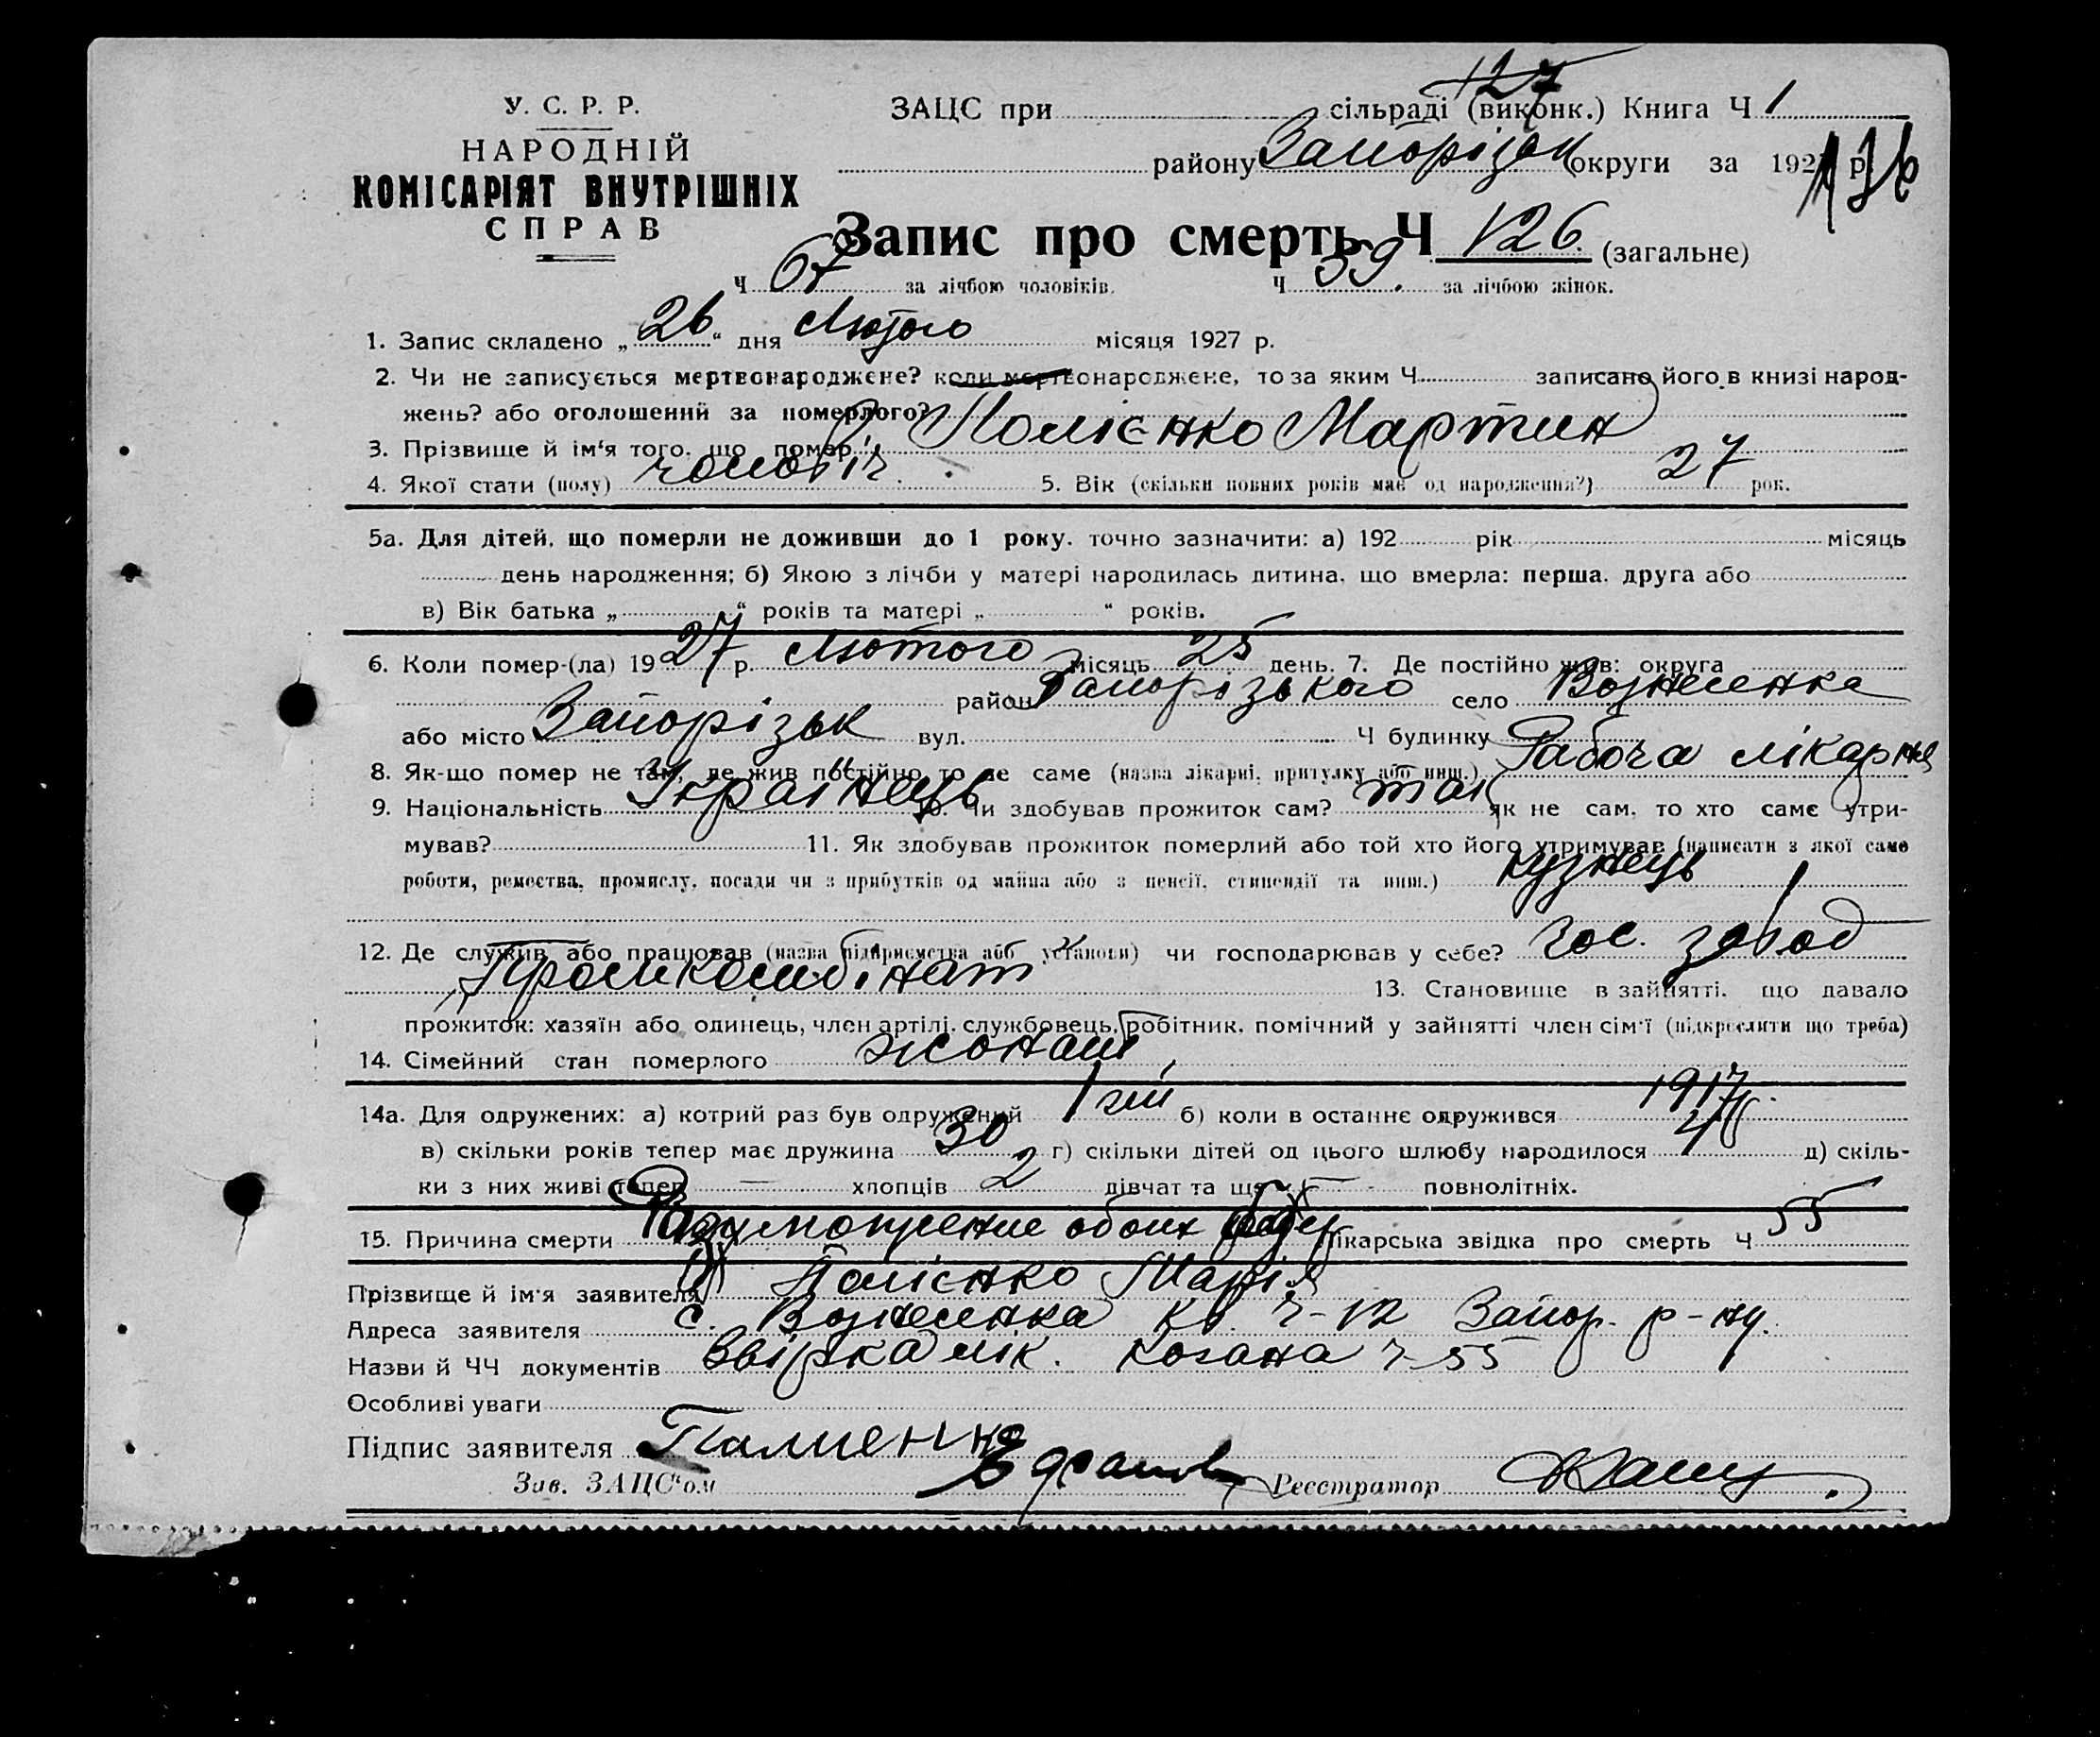 127
У. С. Р. Р.
ЗАЦС при сільраді (виконк.) Книга Ч 1
НАРОДНІЙ
КОМІСАРІЯТ ВНУТРІШНІХ
СПРАВ
району Запорізьк округи за 192 р.
136
Запис про смерть Ч 126. (загальне)
Ч 67 за лічбою чоловіків. Ч 59. за лічбою жінок.
1. Запис складено „26“ дня Лютого місяця 1927 р.
2. Чи не записується мертвонароджене? коли мертвонароджене, то за яким Ч. записано його в книзі народ-
жень? або оголошений за померлого?
3. Прізвище й ім‘я того, що помер Полієнко Мартин
4. Якої стати (полу) чоловіч. 5. Вік (скільки повних років має од народження?) 27 рок.
5а. Для дітей, що померли не доживши до 1 року, точно зазначити: а) 192 рік місяць
день народження; б) Якою з лічби у матері народилась дитина, що вмерла: перша, друга або
в) Вік батька „ “ років та матері „ “ років.
6. Коли помер-(ла) 1927 р. Лютого місяць 25 день. 7. Де постійно жив: округа
район Запорізького село Вознесенка
або місто Запорізьк вул. Ч будинку
8. Як-що помер не там, де жив постійно то де саме (назва лікарні, притулку або инш.) Рабоча лікарня
9. Національність Українець 10. Чи здобував прожиток сам? так як не сам, то хто саме утри-
мував? 11. Як здобував прожиток померлий або той хто його утримував (написати з якої само
роботи, ремества, промислу, посади чи з прибутків од майна або з пенсії, стипендії та инш.) кузнець
12. Де служив або працював (назва підприємства або установи) чи господарював у себе? Гос. завод
„Промкомбінат 13. Становище в зайнятті, що давало
прожиток: хазяїн або одинець, член артілі, службовець, робітник, помічний у зайнятті член сім‘ї (підкреслити що треба)
14. Сімейний стан померлого жонат
14а. Для одружених: а) котрий раз був одружений 1 ший б) коли в останнє одружився 1917
в) скільки років тепер має дружина 30 г) скільки дітей од цього шлюбу народилося 4 д) скіль-
ки з них живі тепер — хлопців 2 дівчат та ще — повнолітніх.
15. Причина смерти обоих лікарська звідка про смерть Ч 55
Прізвище й ім‘я заявителя Полієнко Марія
Адреса заявителя с. Вознесенка кв. ч-12 Запор. р-ну.
Назви й ЧЧ документів Звірка лік. Когана ч 55
Особливі уваги
Підпис заявителя
Зав. ЗАЦС‘ом Реєстратор